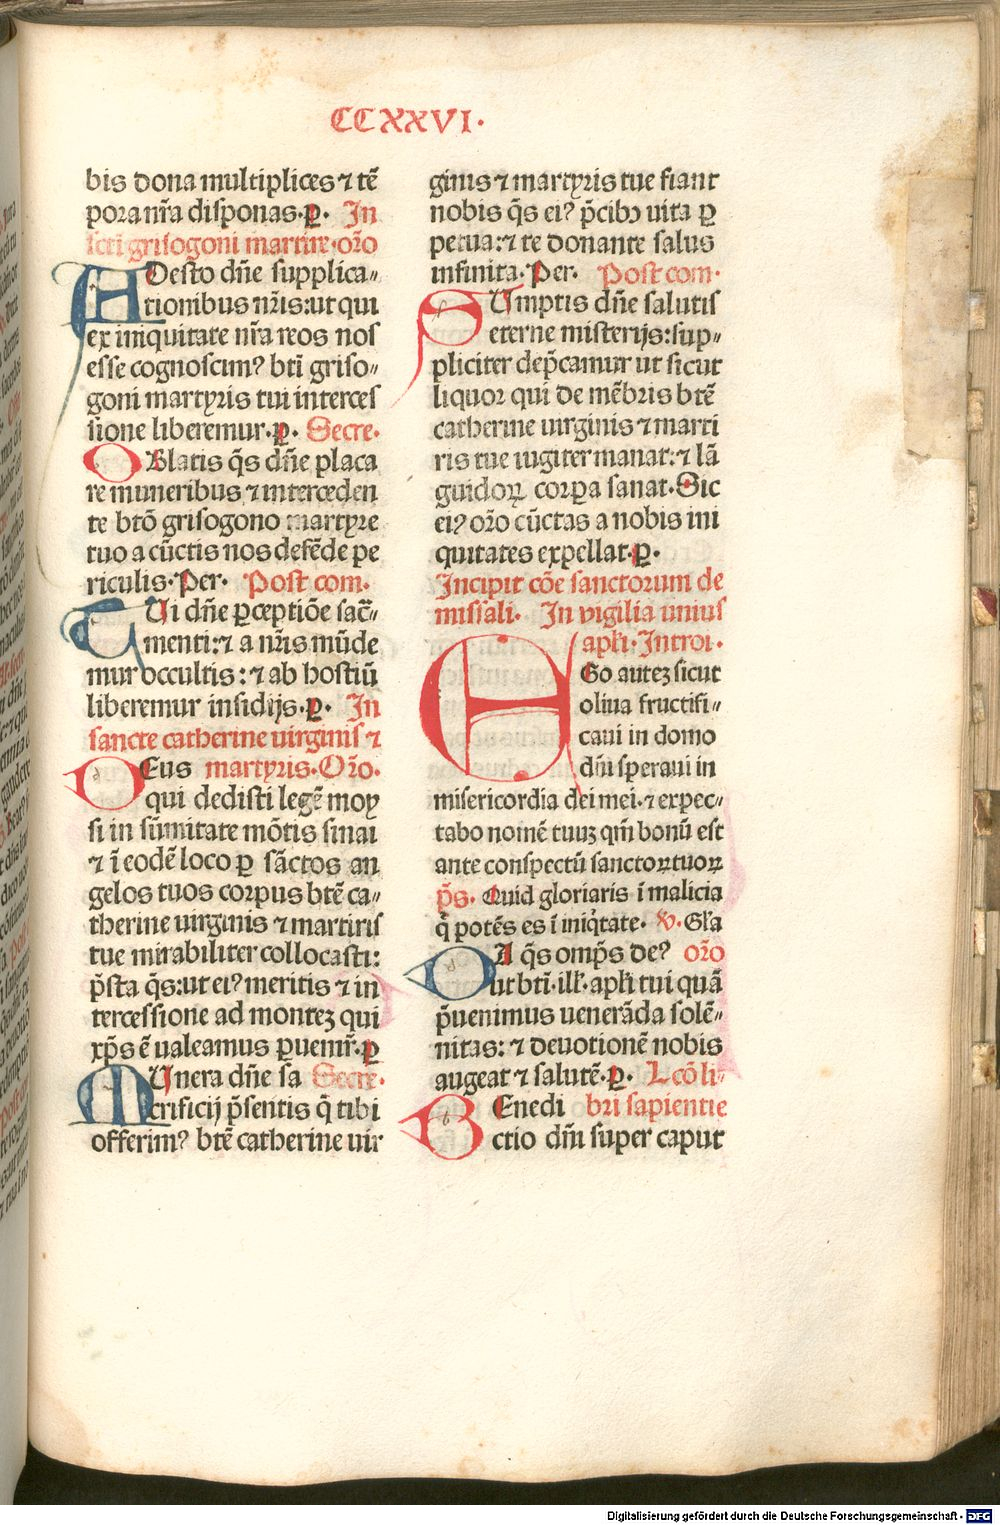 CCXXVI.
bis dona multiplices ⁊ tē
pora nr̄a disponas. ꝑ. In
scti grisogoni martire. oro
ADesto dn̄e supplica„
tionibus nr̄is: ut qui
ex iniquitate nr̄a reos nos
esse cognoscimꝰ bt̄i griso„
goni martyris tui interces
sione liberemur. ꝑ. Secre.
OBlatis q̄s dn̄e placa
re muneribus ⁊ interceden
te btō grisogono martyre
tuo a cūctis nos defēde pe
riculis. Per. Post com.
TUi dn̄e ꝑceptiōe sac̄„
menti: ⁊ a nr̄is mūde
mur occultis: ⁊ ab hostiū
liberemur insidijs. ꝑ. In
sancte catherine uirginis ⁊
DEus martyris. Oro.
qui dedisti legē moy
si in sūmitate mōtis sinai
⁊ ī eodē loco ꝑ sāctos an
gelos tuos corpus btē ca„
therine uirginis ⁊ martiris
tue mirabiliter collocasti:
p̄sta q̄s: ut eiꝰ meritis ⁊ in
tercessione ad montez qui
xp̄s ē ualeamus ꝑuenir̄. ꝑ
MUnera dn̄e sa Secre.
crificij p̄sentis q̄ tibi
offerimꝰ btē catherine uir
ginis ⁊ martyris tue fiant
nobis q̄s eiꝰ p̄cibꝫ uita ꝑ
petua: ⁊ te donante salus
infinita. Per. Post com.
SUmptis dn̄e salutis
eterne misterijs: sup„
pliciter dep̄camur ut sicut
liquor qui de mēbris btē
catherine uirginis ⁊ marti
ris tue iugiter manat: ⁊ lā
guidoꝝ corꝑa sanat. Sic
eiꝰ orō cūctas a nobis ini
quitates expellat. ꝑ.
Incipit cōe sanctorum de
missali. In vigilia unius
apl̄i. Introi.
EGo autez sicut
oliua fructifi„
caui in domo
dn̄i speraui in
misericordia dei mei. ⁊ expec„
tabo nomē tuuz qm̄ bonū est
ante conspectū sanctoꝝ tuoꝝ
p̄s. Quid gloriaris ī malicia
q̄ potēs es ī iniq̇tate. ꝟ. Gl̄a
DA q̄s omp̄s deꝰ oro
ut bt̄i. ill̄. apl̄i tui quā
p̄uenimus uenerāda solē„
nitas: ⁊ deuotionē nobis
augeat ⁊ salutē. ꝑ. Lcō li„
BEnedi bri sapientie
ctio dn̄i super caput
Digitalisierung gefördert durch die Deutsche Forschungsgemeinschaft - DFG